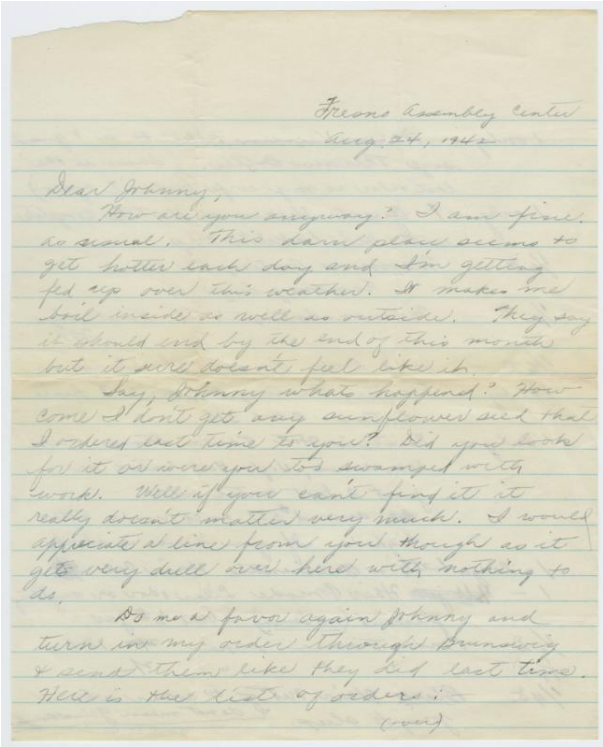 Fresno Assembly Center
Aug. 24, 1942
Dear Johnny,
How are you anyway? I am fine
as usual. This darn place seems to
get hotter each day and I'm getting
fed up over this weather. It makes me
boil inside as well as outside. They say
it should end by the end of this month
but it sure doesn't feel like it.
Say, Johnny whats happened? How
come I don't get any sunflower seed that
I ordered last time to you? Did you look
for it or were you too swamped with
work. Well if you can't find it it
really doesn't matter very much. I would
appreciate a line from you though as it
gets very dull over here with nothing to
do.
Do me a favor again Johnny and
turn in my order through Brunswig
& send them like they did last time.
Here is the list of orders:
(over)